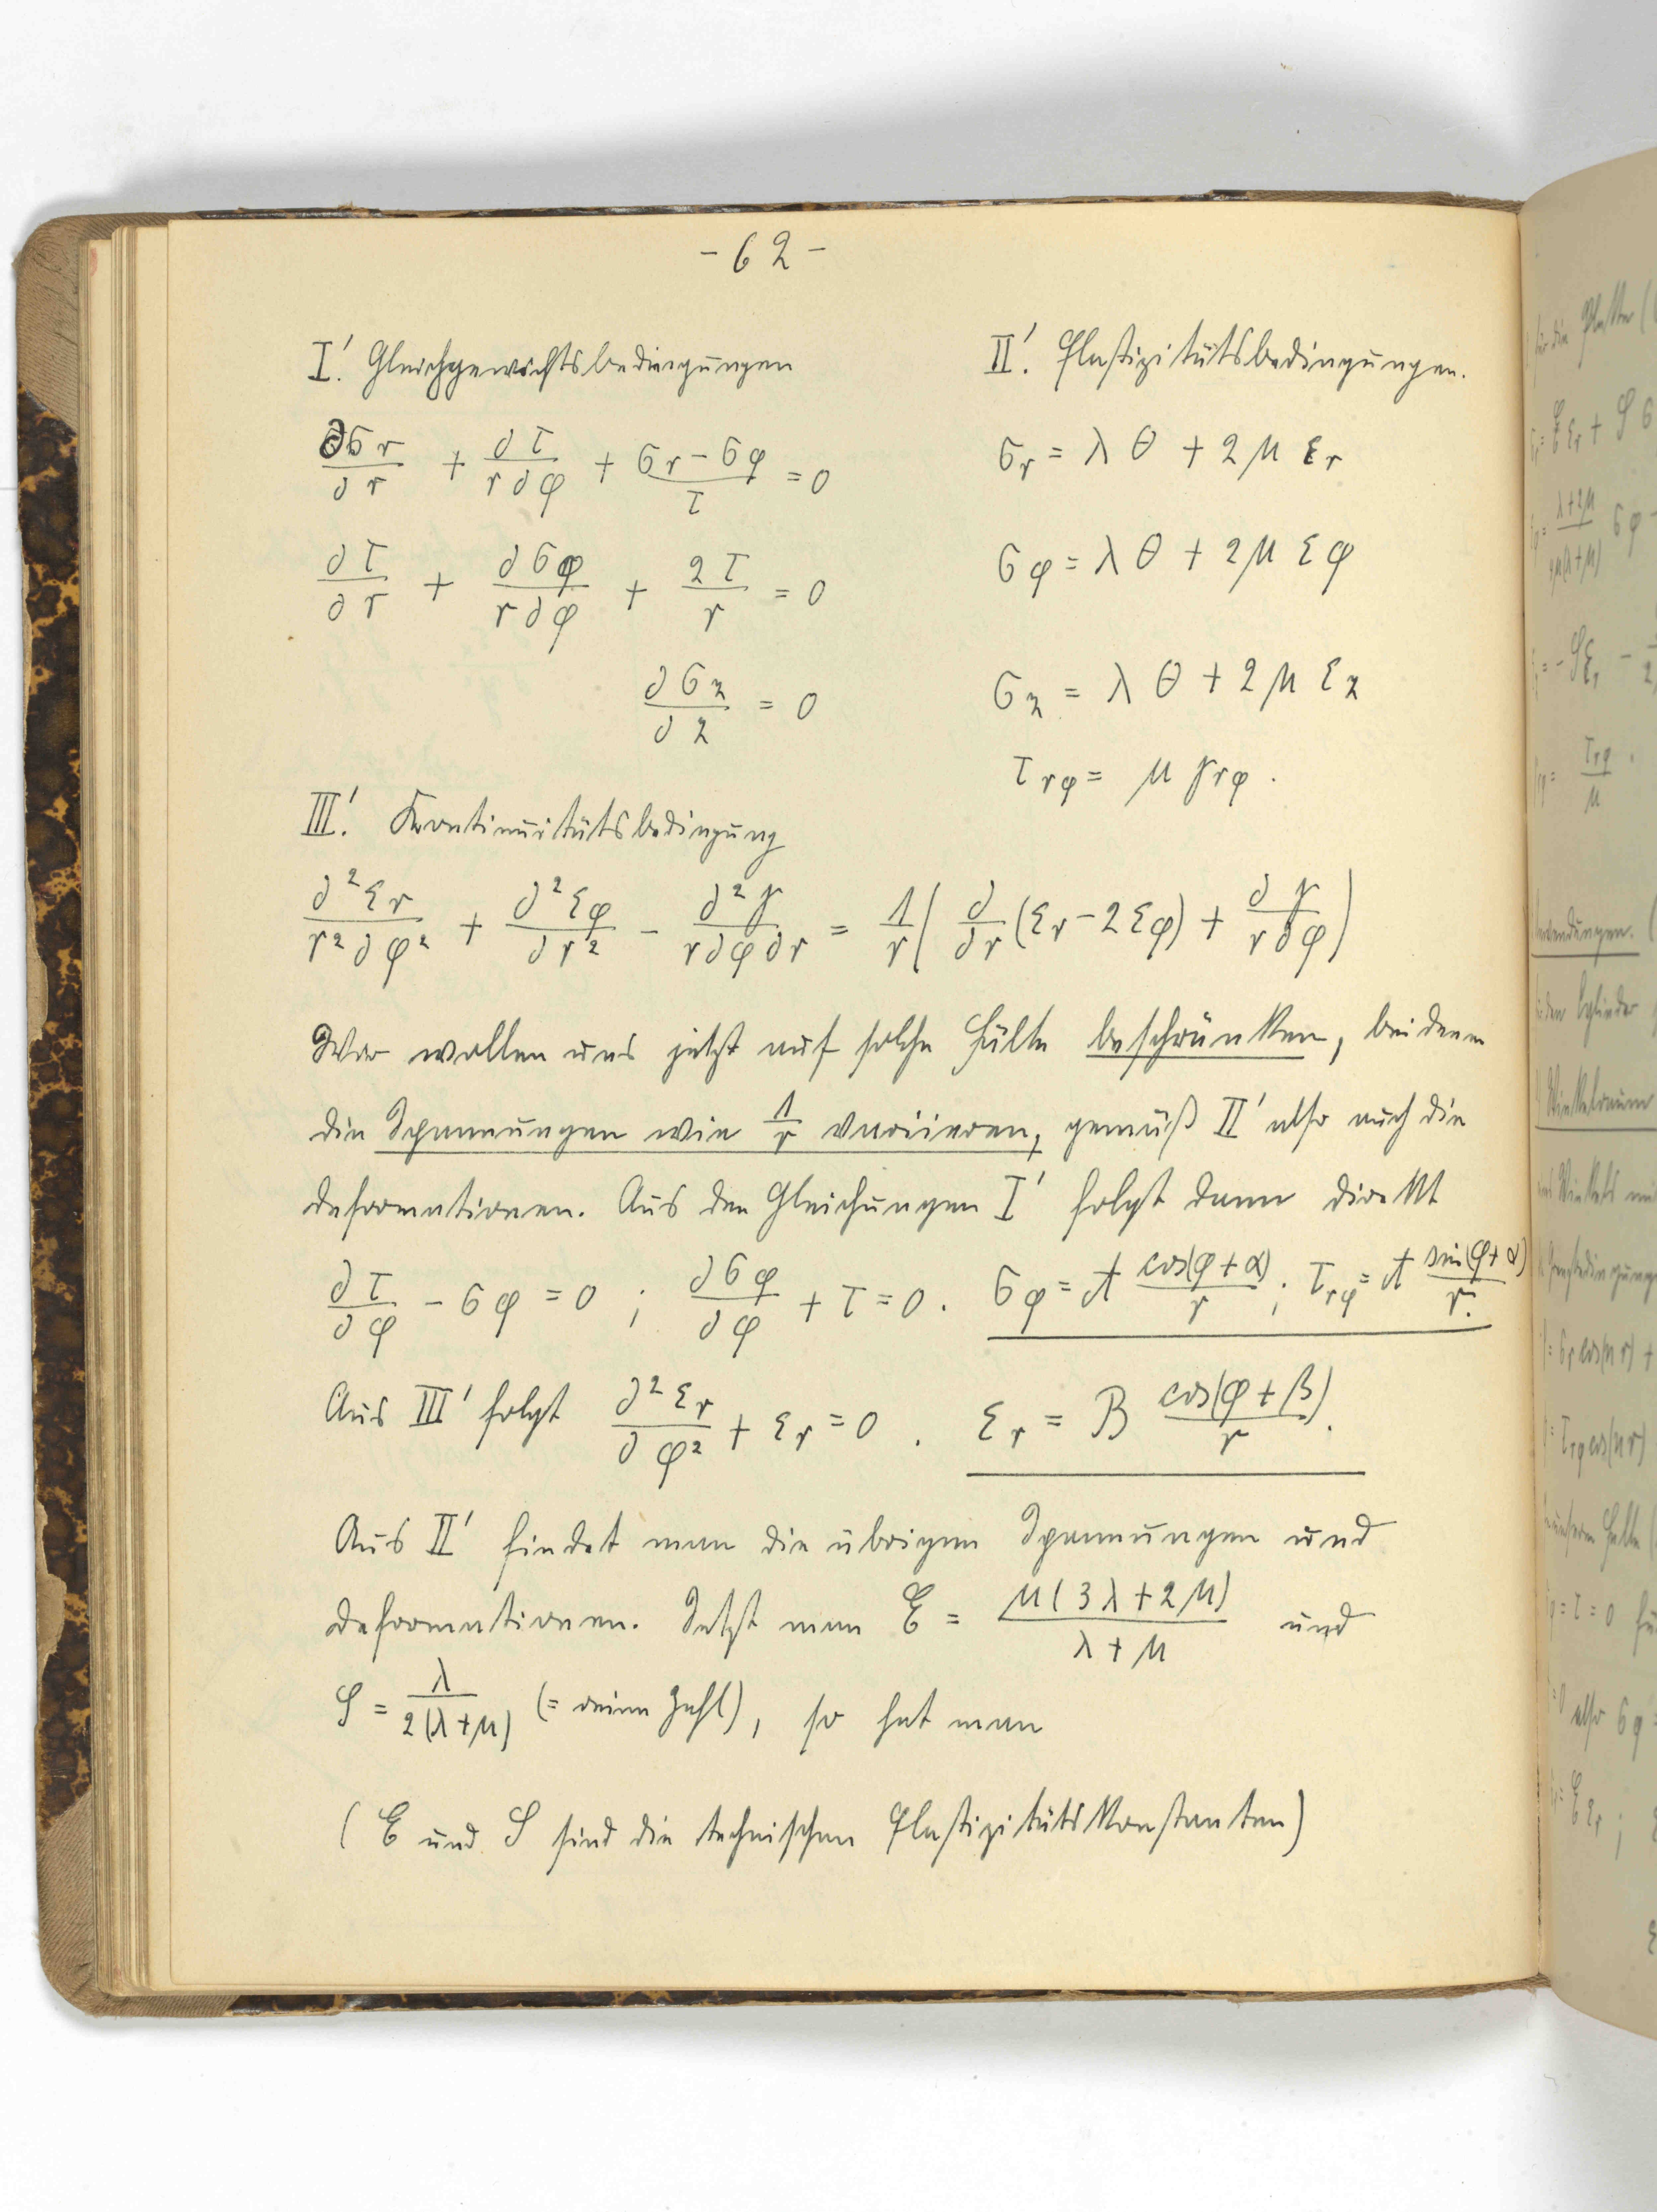 - 62 -
I'. Gleichgewichtsbedingungen
∂σr/∂r + ∂τ/r∂φ + σr-σφ/τ = 0
∂τ/∂r + ∂σφ/r∂φ + 2τ/r = 0
∂σz/∂z = 0
II'. Elastizitätsbedingungen.
σr = λθ + 2μεr
σφ = λθ + 2μεφ
σz = λθ + 2μεz
τrφ = μγrφ.
III'. Kontinuitätsbedingung
∂²εr/r²∂φ² + ∂²εφ/∂r² - ∂²γ/r∂φ∂r = 1/r(∂/∂r(εr-2εφ) + ∂γ/r∂φ)
Wir wollen uns jetzt auf solche Fälle beschränken, bei denen
die Spannungen wie 1/r variieren, gemäß II' also auch die
Deformationen. Aus den Gleichungen I' folgt dann direkt
∂τ/∂φ - σφ = 0 ; ∂σφ/∂φ + τ = 0. σφ = A cos(φ+α)/r ; τrφ = A sin(φ+α)/r.
Aus III' folgt ∂²εr/∂φ² + εr = 0 . εr = B cos(φ+β)/r.
Aus II' findet man die übrigen Spannungen und
Deformationen. Setzt man E = μ(3λ+2μ)/λ+μ und
S = λ/2(λ+μ) (= reine Zahl), so hat man
(E und S sind die technischen Elastizitätskonstanten)